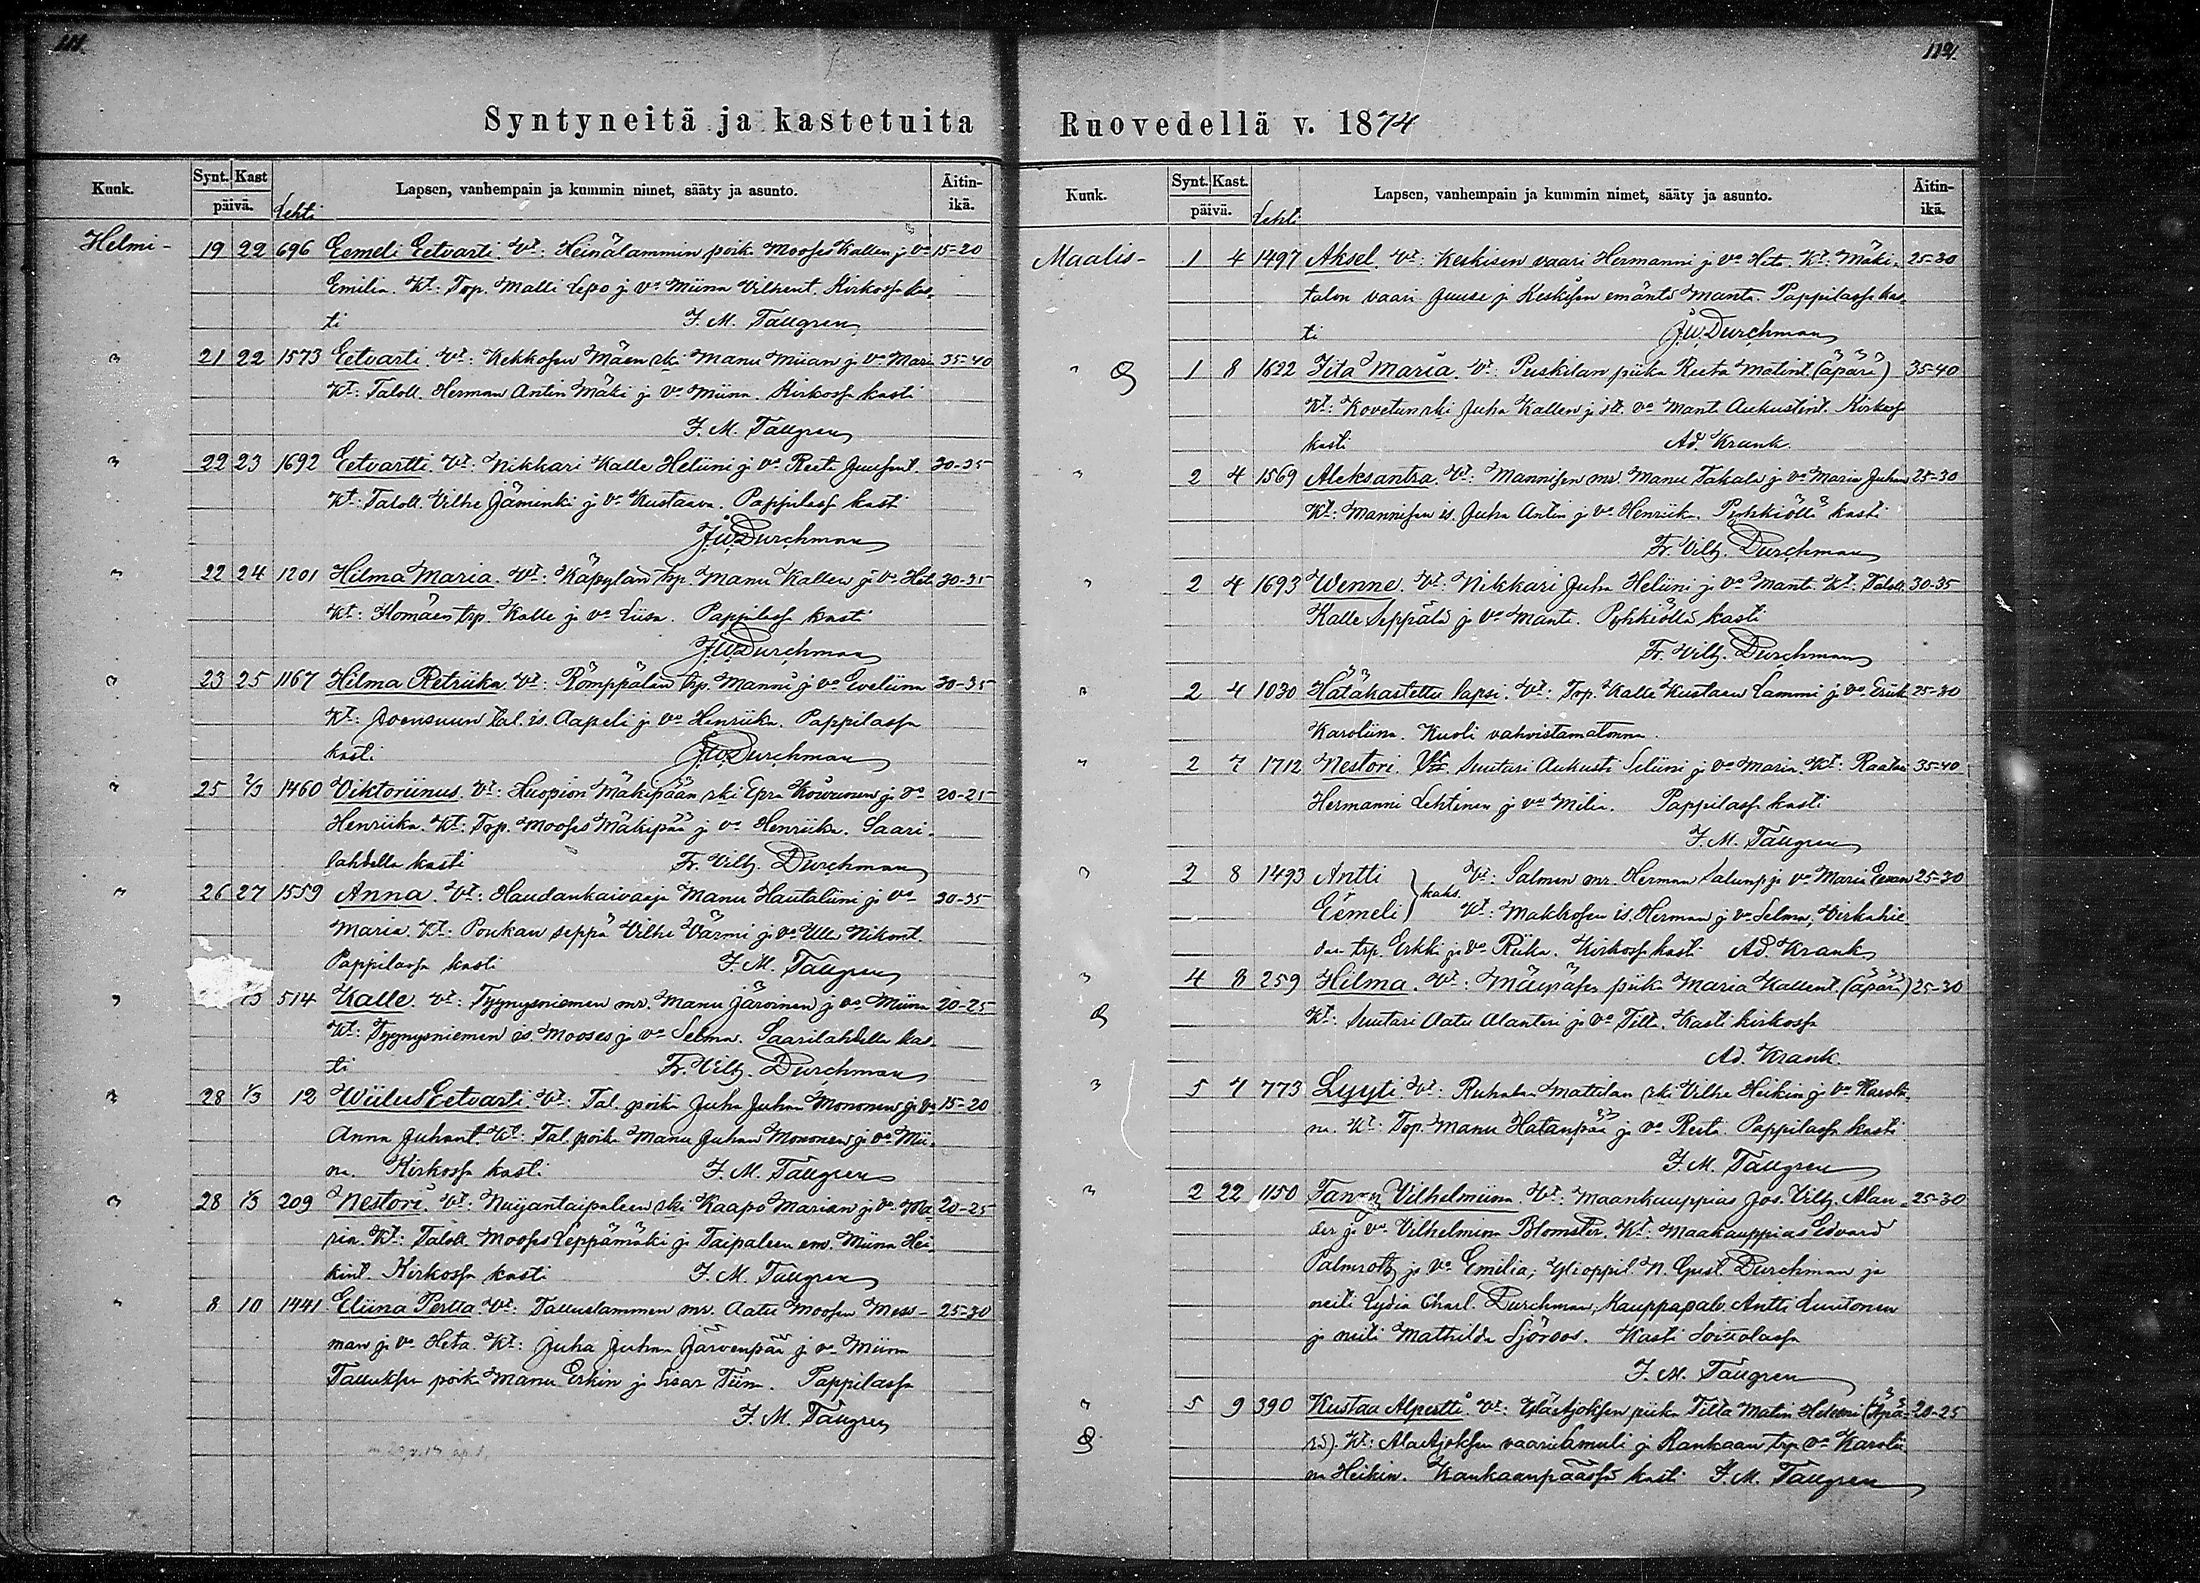 111.
Syntyneitä ja kastetuita
Kuuk. Synt. Kast päivä. Lehti Lapsen, vanhempain ja kummin nimet, sääty ja asunto. Äitin-ikä.
Helmi- 19 22 696 Eemeli Eetvarti. Vt: Heinälammin poika Mooses Kallen j. vo 15-20
Emilia. Kt: Torp. Malli Lepo j. vo Miina Vilhent. Kirkossa kas-
ti F. M. Tallgren
" 21 22 1573 Eetvarti. Vt: Kekkosen Mäen rki Manu Miian j. vo Maria 35-40
Kt: Taloll. Herman Antin Mäki j. vo Miina. Kirkossa kasti
F. M. Tallgren
" 22 23 1692 Eetvartti. Vt: Nikkari Kalle Heliini j. vo Reeta Juusent. 30-35
Kt: Taloll. Vilhe Jäminki j. vo Kustaava. Pappilassa kasti
J. W. Durchman
" 22 24 1201 Hilma Maria. Vt: Käpylän trp. Manu Kallen j. vo Heta 30-35
Kt: Homäen trp. Kalle j. vo Liisa. Pappilassa kasti
J. W. Durchman
" 23 25 1167 Hilma Retriika. Vt: Römppälän trp. Manni j. vo Eveliina 30-35
Kt: Joensuun tal. is. Aapeli j. vo Henriika. Pappilassa
kasti J. W. Durchman
" 25 2/3 1460 Viktoriinus. Vt: Huopion Mäkipään rki Epra j. vo 20-25
Henriika. Kt: Trp. Mooses Mäkipää j. vo Henriika. Saari-
lahdella kasti Fr. Vilh. Durchman
" 26 27 1559 Anna. Vt: Haudankaivaja Manu Hautaliini j. vo 30-35
Maria. Kt: Poukan seppä Vilhe Värmi j. vo Ulla Nikont.
Pappilassa kasti F. M. Tallgren
" /3 514 Kalle. Vt: Tyynysniemen mr. Manu Järvinen j. vo Miina 20-25
Kt: Tyynysniemen is. Mooses j. vo Selma. Saarilahdella kas-
ti Fr. Vilh. Durchman
" 28 1/3 12 Wiilus Eetvarti. Vt: Tal. poika Juha Juhan Mononen j. vo 15-20
Anna Juhant. Kt: Tal. poika Manu Juhan Mononen j. vo Mii-
na. Kirkossa kasti F. M. Tallgren
" 28 1/3 209 Nestori. Vt: Nuijantaipaleen rki Kaapo Marian j. vo Ma- 20-25
ria. Kt: Taloll. Mooses Leppämäki j. Taipaleen em. Miina Hei-
kint. Kirkossa kasti F. M. Tallgren
" 8 10 1441 Eliina Pertta. Vt: Talluslammen mr. Aatu Moosen Mess- 25-30
man j. vo Heta. Kt: Juha Juhan Järvenpää j. vo Miina
poika Manu Erkin j. sisar Tiina. Pappilassa
F. M. Tallgren
112.
Ruovedellä v. 1874
Kuuk. Synt. Kast. päivä. Lehti Lapsen, vanhempain ja kummin nimet, sääty ja asunto. Äitin-ikä.
Maalis- 1 4 1497 Aksel. Vt: Keskisen vaari Hermanni j. vo Heta. Kt: Mäki- 25-30
talon vaari Juuse j. Keskisen emäntä Manta. Pappilassa kas-
ti J. W. Durchman
" 1 8 1622 Iita Maria. Vt: Puskilan piika Reeta Matint. (äpärä) 35-40
Kt: Kovetun rki Juha Kallen j. itt. vo Manta Aukustint. Kirkossa
kasti Ad. Krank.
" 2 4 1569 Aleksantra. Vt: Mannisen mr. Manu Takala j. vo Maria Juhan 25-30
Kt: Mannisen is. Juha Antin j. vo Henriika. Pyhkiöllä kasti
Fr. Vilh. Durchman
" 2 4 1693 Wenne. Vt: Nikkari Juha Heliini j. vo Manta. Kt: Taloll. 30-35
Kalle Seppälä j. vo Manta. Pyhkiöllä kasti
Fr. Vilh. Durchman
" 2 4 1030 Hätäkastettu lapsi. Vt: Trp. Kalle Kustaan Lammi j. vo Eriik. 25-30
Karoliina. Kuoli vahvistamatonna.
" 2 7 1712 Nestori. Vt: Suutari Aukusti Seliini j. vo Maria. Kt: Raatari 35-40
Hermanni Lehtinen j. vo Milia. Pappilassa kasti
F. M. Tallgren
" 2 8 1493 Antti } kaks. Vt: Salmen mr. Herman Salump j. vo Maria Eevan 25-30
Eemeli } Kt: Makkosen is. Herman j. vo Selma, Virkahie-
dan trp. Erkki j. vo Riika. Kirkossa kasti Ad. Krank
" 4 8 259 Hilma. Vt: piika Maria Kallent. (äpärä) 25-30
Kt: Suutari Aatu Alanteri j. vo Tilta. Kasti kirkossa
Ad. Krank.
" 5 7 773 Lyyti. Vt: Ruhalan Mattilan rki Vilhe Heikin j. vo Karolii-
na. Kt: Torp. Manu Hatanpää j. vo Reeta. Pappilassa kasti
F. M. Tallgren
" 2 22 1150 Vilhelmiina. Vt: Maankauppias Jos. Vilh. Alan- 25-30
der j. vo Vilhelmina Blomster. Kt: Maakauppias Edvard
Palmroth j. vo Emilia; Ylioppil. N. Gust. Durchman ja
neiti Lydia Charl. Durchman, Kauppapalv. Antti Luutonen
j. neiti Mathilda Sjöroos. Kasti
F. M. Tallgren
" 5 9 390 Kustaa Alpertti. Vt: YläAjoksen piika Tilta Matin (Äpä- 20-25
rä). Kt: AlaAjoksen vaari Samuli j. Kankaan trp. vo Karolii-
na Heikin. Kankaanpäässä kasti F. M. Tallgren